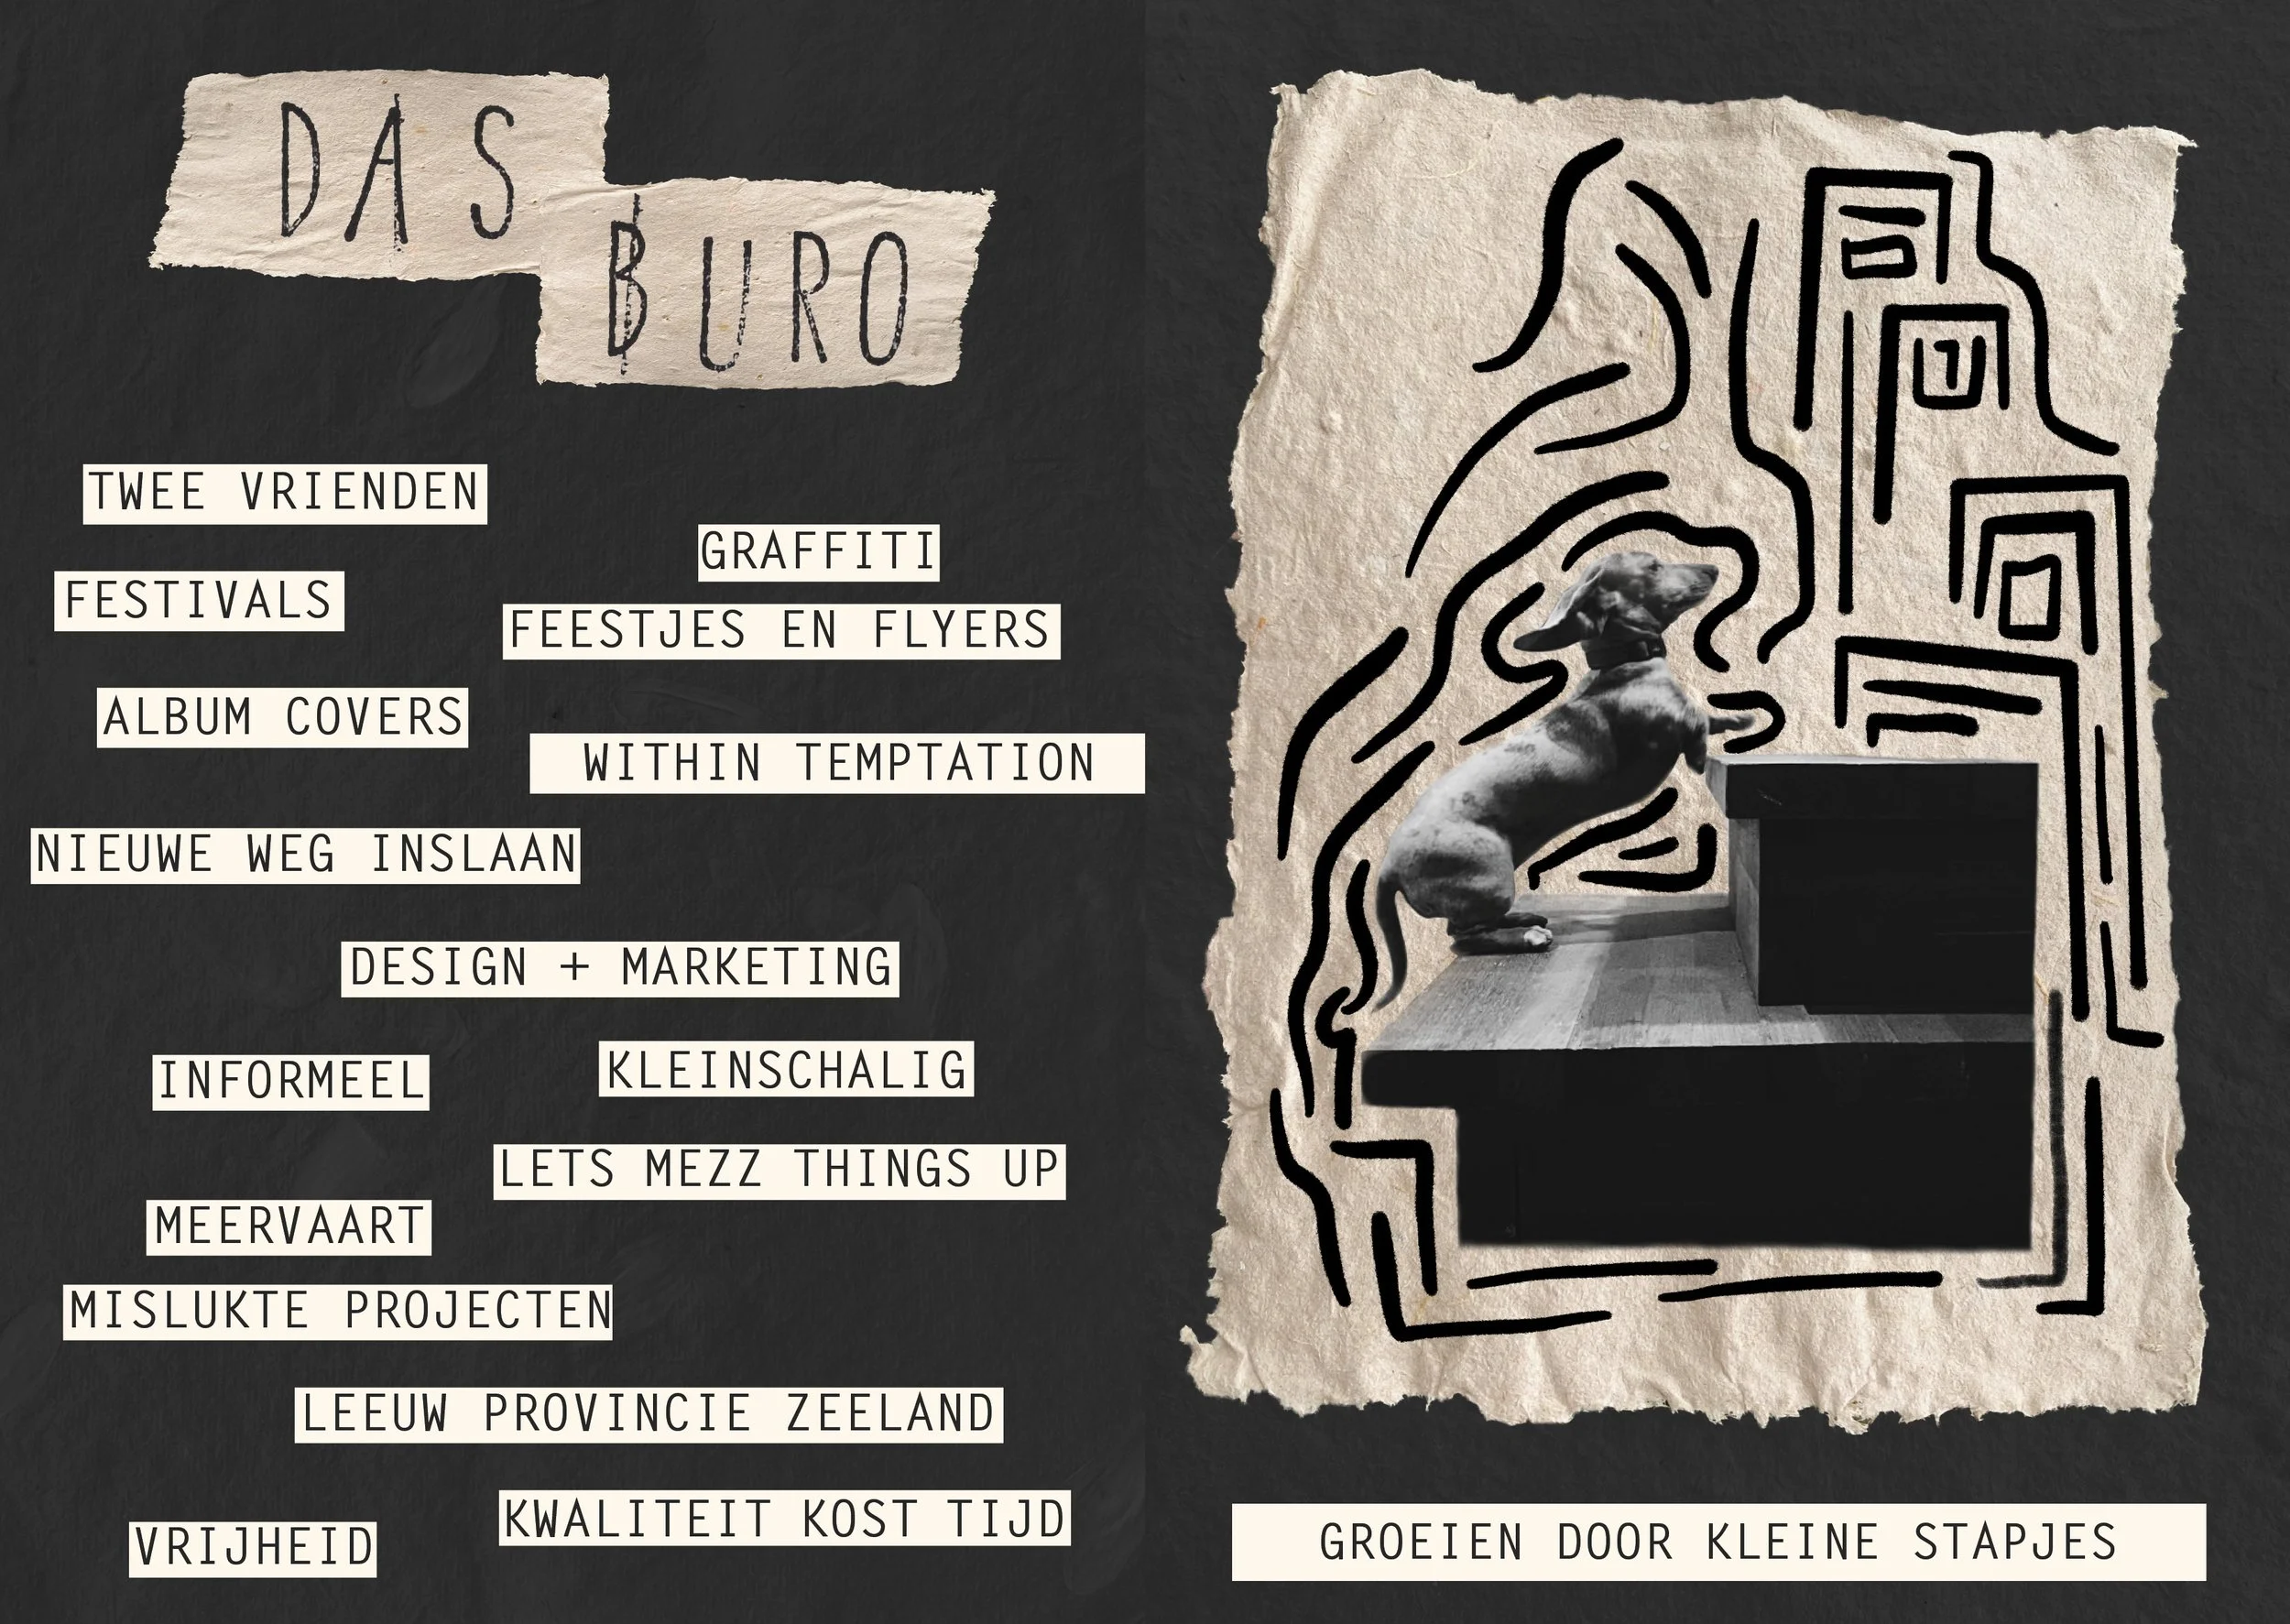 DAS
BURO
TWEE VRIENDEN
GRAFFITI
FESTIVALS
FEESTJES EN FLYERS
ALBUM COVERS
WITHIN TEMPTATION
NIEUWE WEG INSLAAN
DESIGN + MARKETING
INFORMEEL
KLEINSCHALIG
LETS MEZZ THINGS UP
MEERVAART
MISLUKTE PROJECTEN
LEEUW PROVINCIE ZEELAND
KWALITEIT KOST TIJD
VRIJHEID
GROEIEN DOOR KLEINE STAPJES